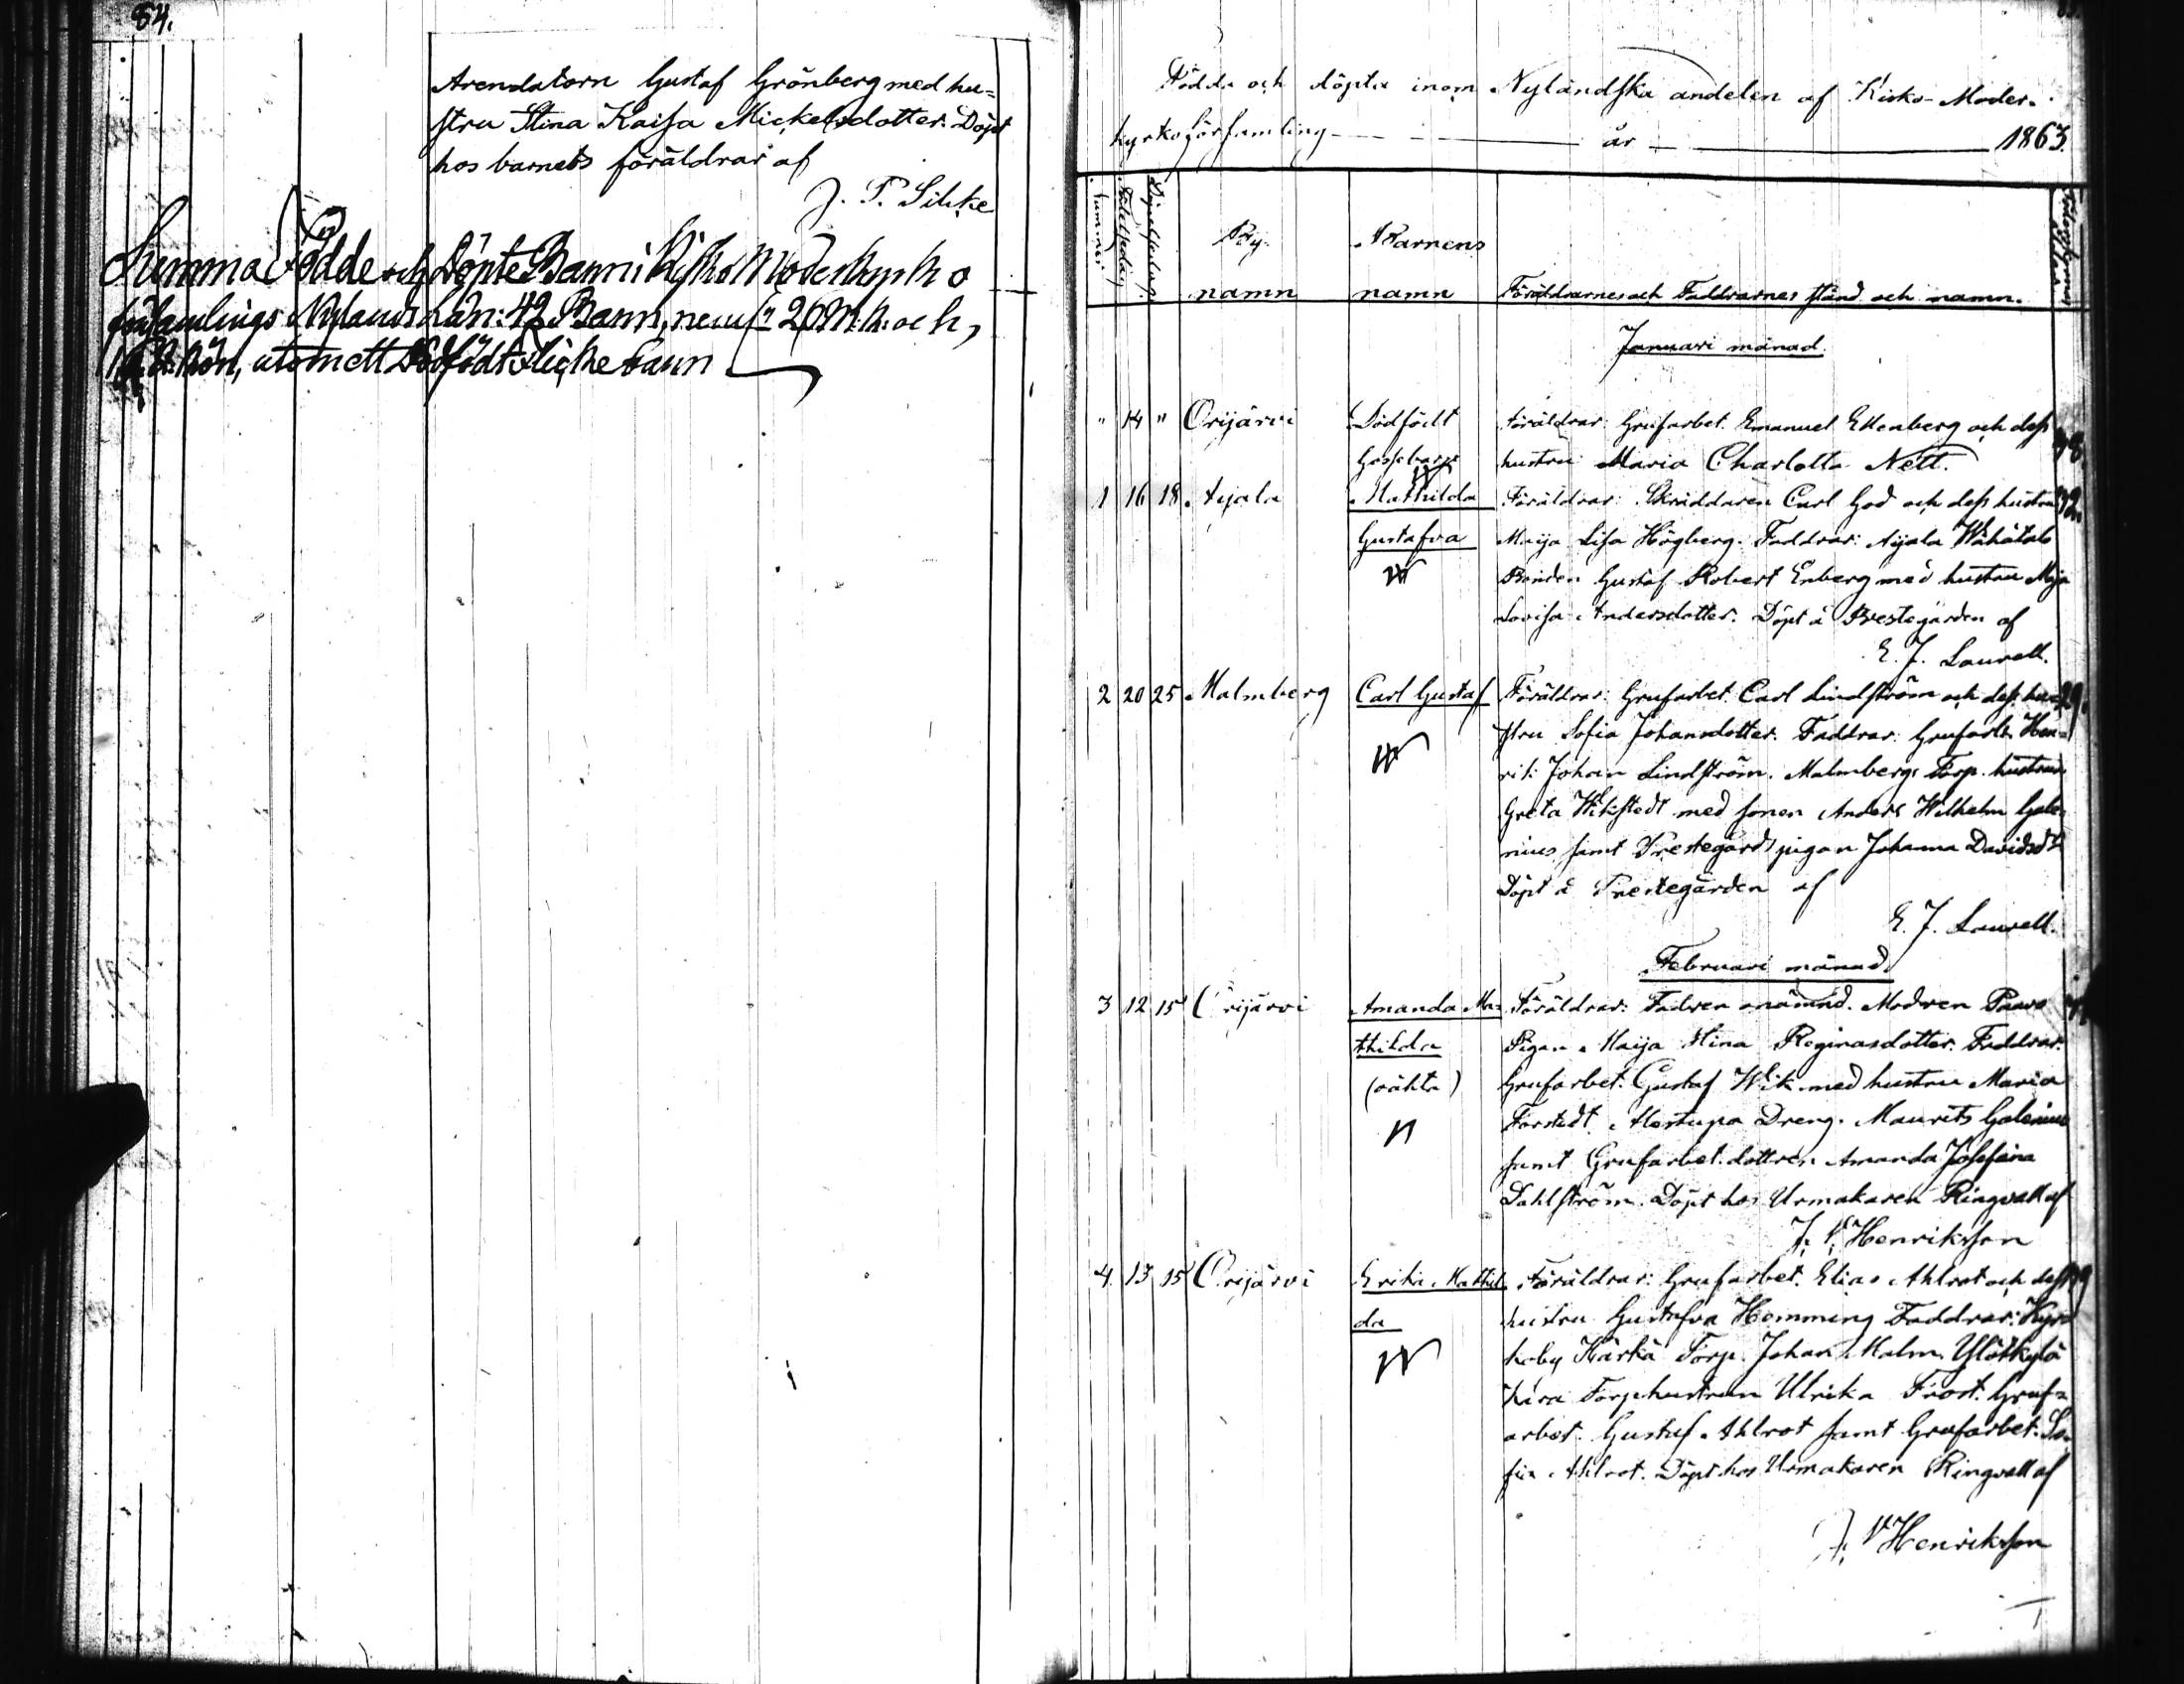 84.
Arendatorn Gustaf Grönberg med hu=
stru Stina Kaisa Mickelsdotter. Döpt
hos barnets föräldrar af
J. T. Silcke
Summa Födde och Döpte Barn i Kisko Moderkyrko
församlings Nylands Län: 42 Barn, 20 M. k. och,
kön, utom ett Dödfödt barn
Födda och döpta inom Nyländska andelen af Kisko-Moder-
kyrkoförsamling år 1863.
Nummer
Födelsedag
Döpelsedag
By-
namn
Barnens
namn
Föräldrarnes och Faddrarnes stånd och namn.
Januari månad.
" 14 " Orijärvi Dödfödt Föräldrar: Grufarbet. Emanuel Ekenberg och dess
Gossebarn hustru Maria Charlotta Nett.
1 16 18 Aijala Mathilda Föräldrar: Skräddaren Carl God och dess hustru
Gustafva Maija Lisa Högberg. Faddrar: Aijala
Bonden Gustaf Robert Enberg med hustru Maja
Lovisa Andersdotter. Döpt å Prestegården af
E. J. Laurell.
2 20 25 Malmberg Carl Gustaf Föräldrar: Grufarbet. Carl Lindström och dess hu=
stru Sofia Johansdotter. Faddrar: Grufarb. Hen=
rik Johan Lindström. Malmbergs Torp. hustrun
Greta Wikstedt med sonen Anders Wilhelm Gale-
nius samt Prestegårds pigan Johanna Davidsdt.
Döpt å Prestegården af
E. J. Laurell.
Februari månad.
3 12 15 Orijärvi Amanda Ma= Föräldrar: Fadren onämnd. Modren
thilda Pigan Maija Stina Reginasdotter. Faddrar:
(oäkta) Grufarbet. Gustaf Wik med hustru Maria
Forstedt. Alestupa Dreng. Maurits Galenius
samt Grufarbet. dottren Amanda Josefina
Dahlström. Döpt hos Urmakaren Ringvall af
J. V. Henriksson
4 13 15 Orijärvi Erika Mathil Föräldrar: Grufarbet. Elias Ahlrot och dess
da hustru Gustafva Hemming Faddrar: Kyr=
koby Kärkä Torp. Johan Malm.
Torphustrun Ulrika Frost. Gruf=
arbet. Gustaf Ahlrot samt Grufarbet. So=
fia Ahlrot. Döpt hos Urmakaren Ringvall af
J. V. Henriksson